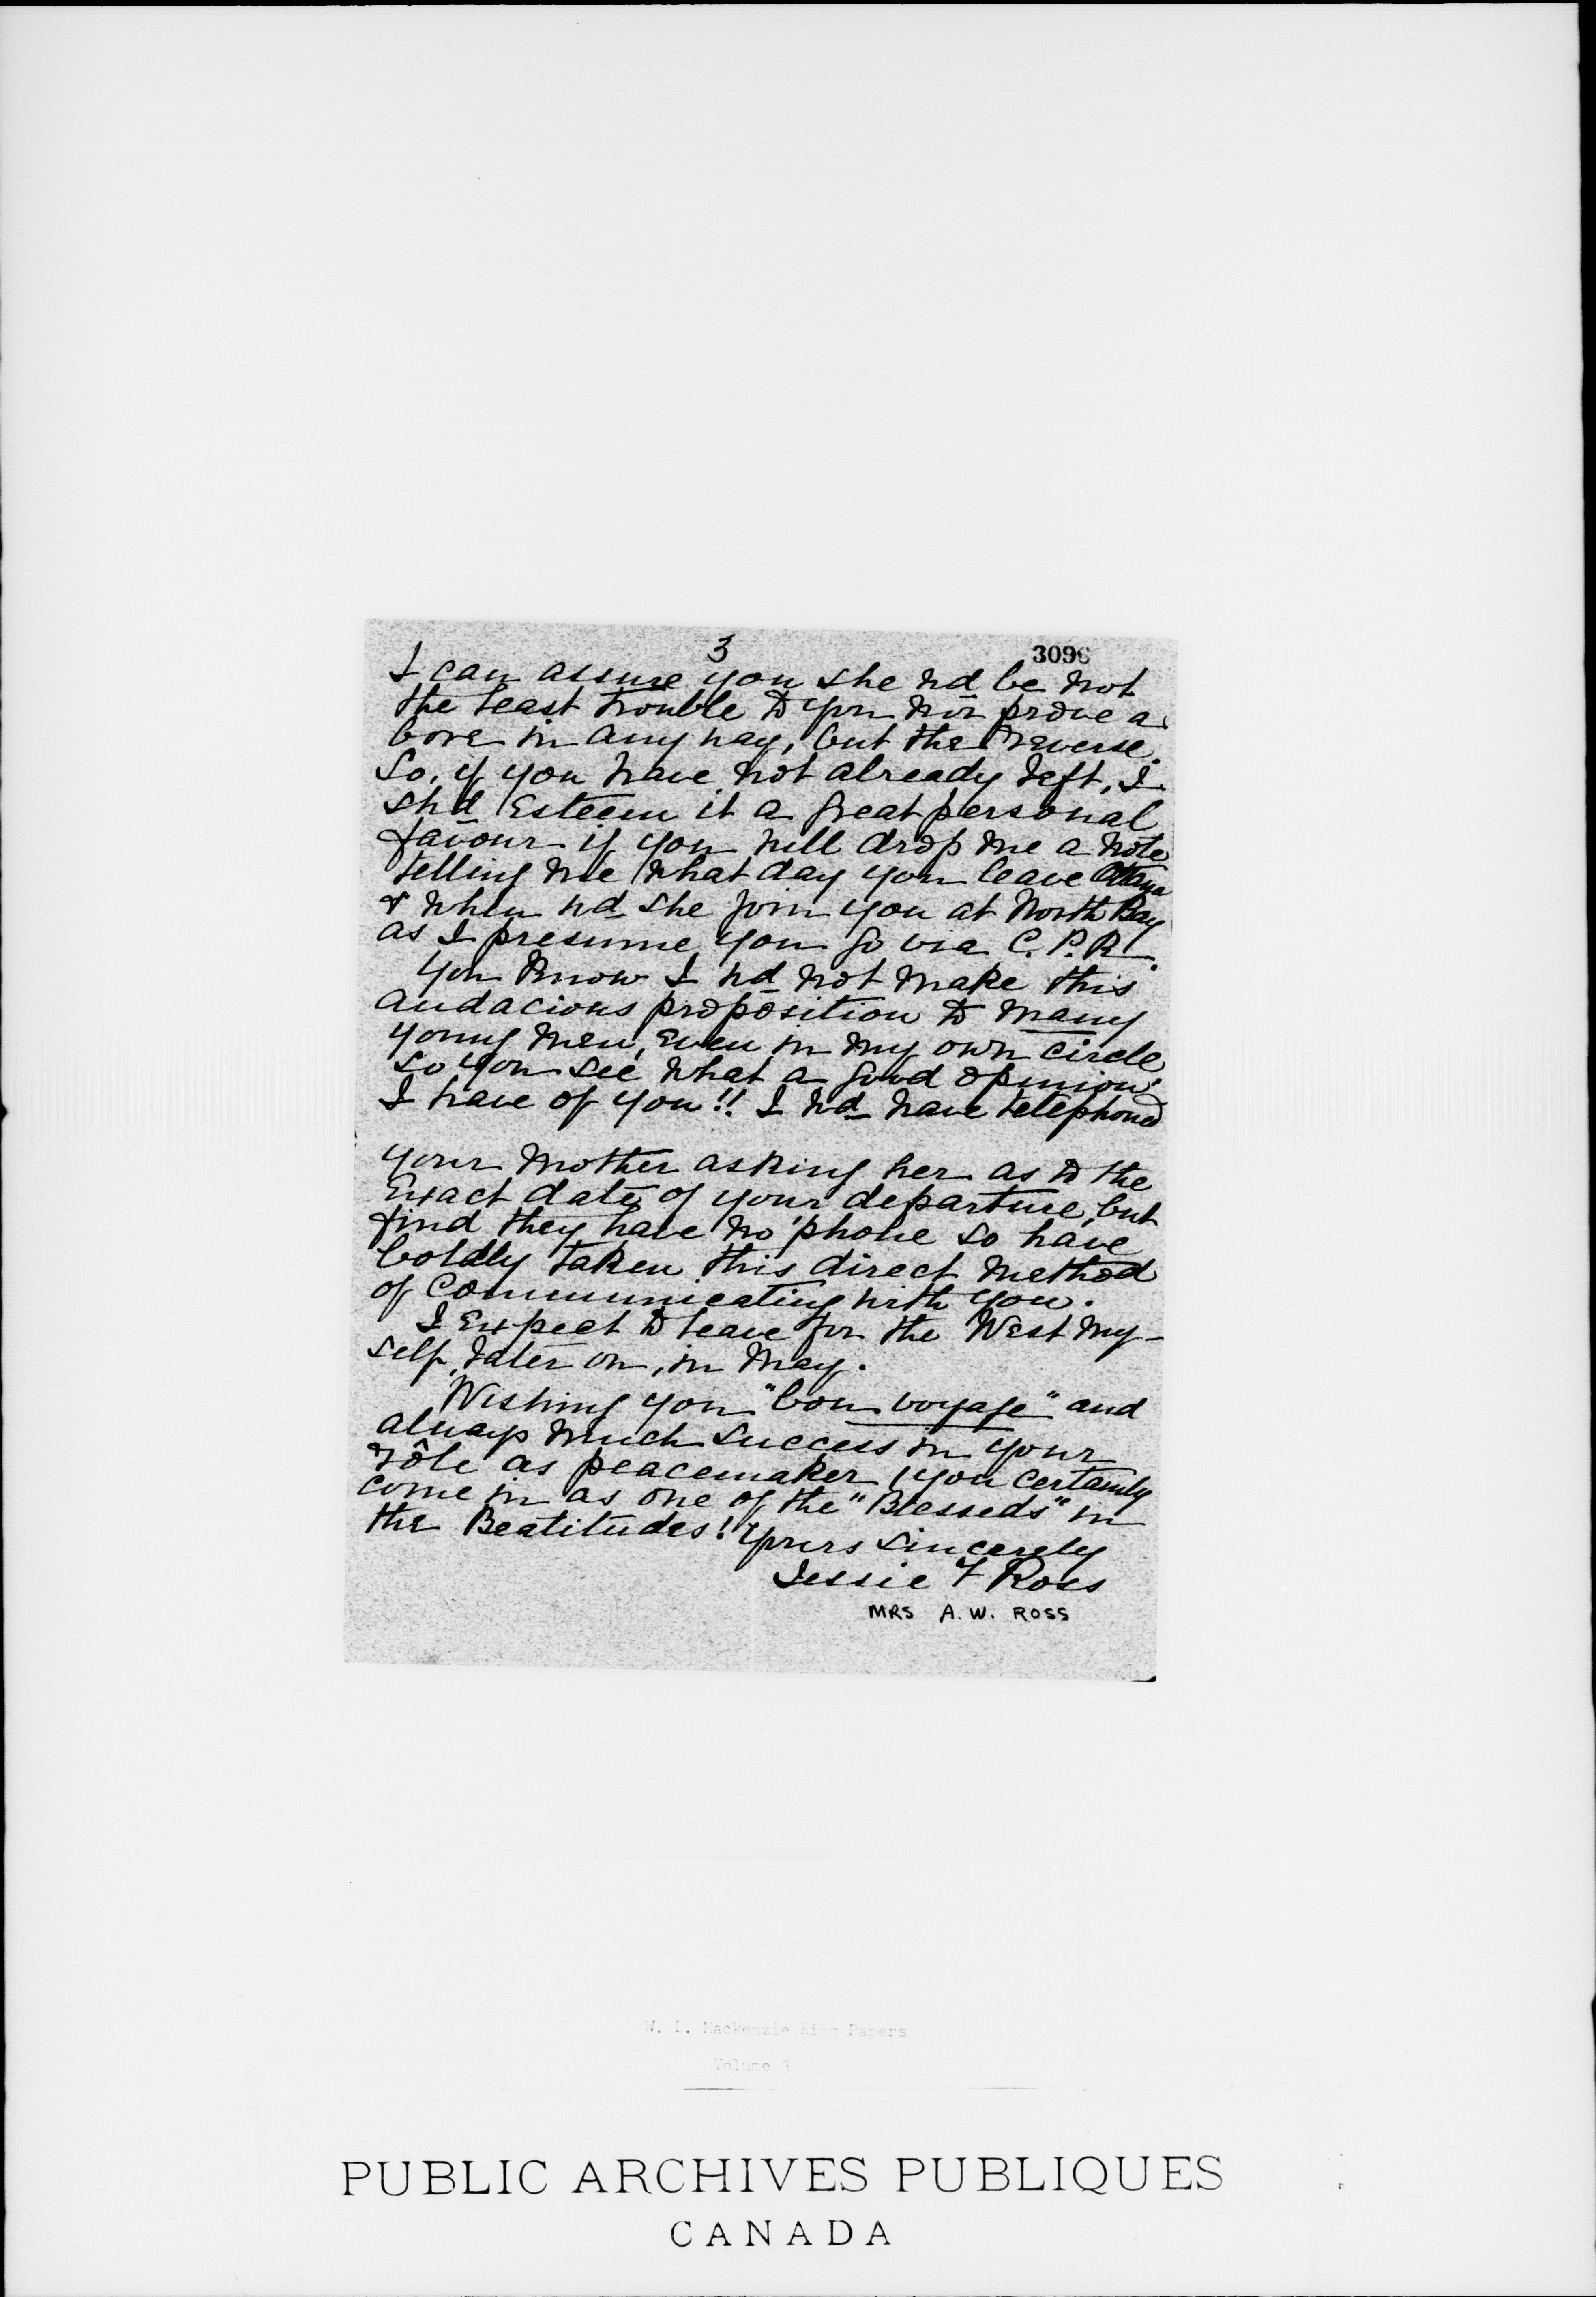 3
3096
I can assure you she wd be not
the least trouble to you nor prove a
bore in any way, but the reverse.
So, if you have not already left, I
shd esteem it a great personal
favour if you will drop me a note
telling me what day you leave Ottawa
& when wd she join you at North Bay
as I presume you go via C.P.R.
You know I wd not make this
audacious proposition to many
young men, even in my own circle
so you see what a good opinion
I have of you!! I wd have telephoned
your Mother asking her as to the
exact date of your departure, but
find they have no 'phone so have
boldly taken this direct method
of communicating with you.
I expect to leave for the West my-
self, later on, in May.
Wishing you "bon voyage" and
always much success in your
rôle as peacemaker, you certainly
come in as one of the "Blesseds" in
the Beatitudes!
Yours sincerely
Jessie F Ross
MRS A.W. ROSS
W. L. Mackenzie King Papers
Volume 3
PUBLIC ARCHIVES PUBLIQUES
CANADA